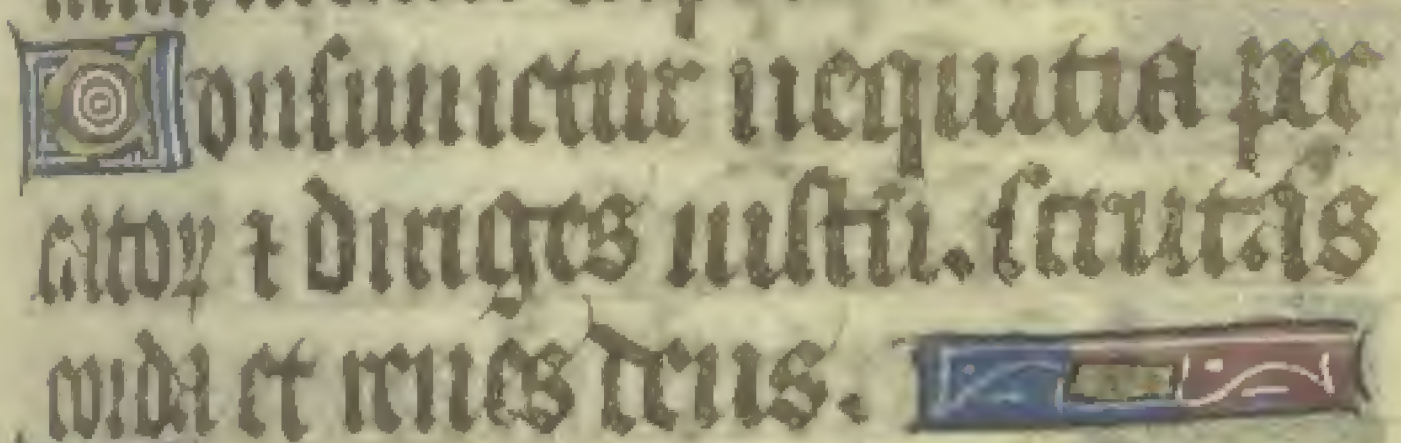 Conſumetur nequitia pec
catoꝝ ⁊ diriges iuſtū. ſcrutās
corda et renes deus.